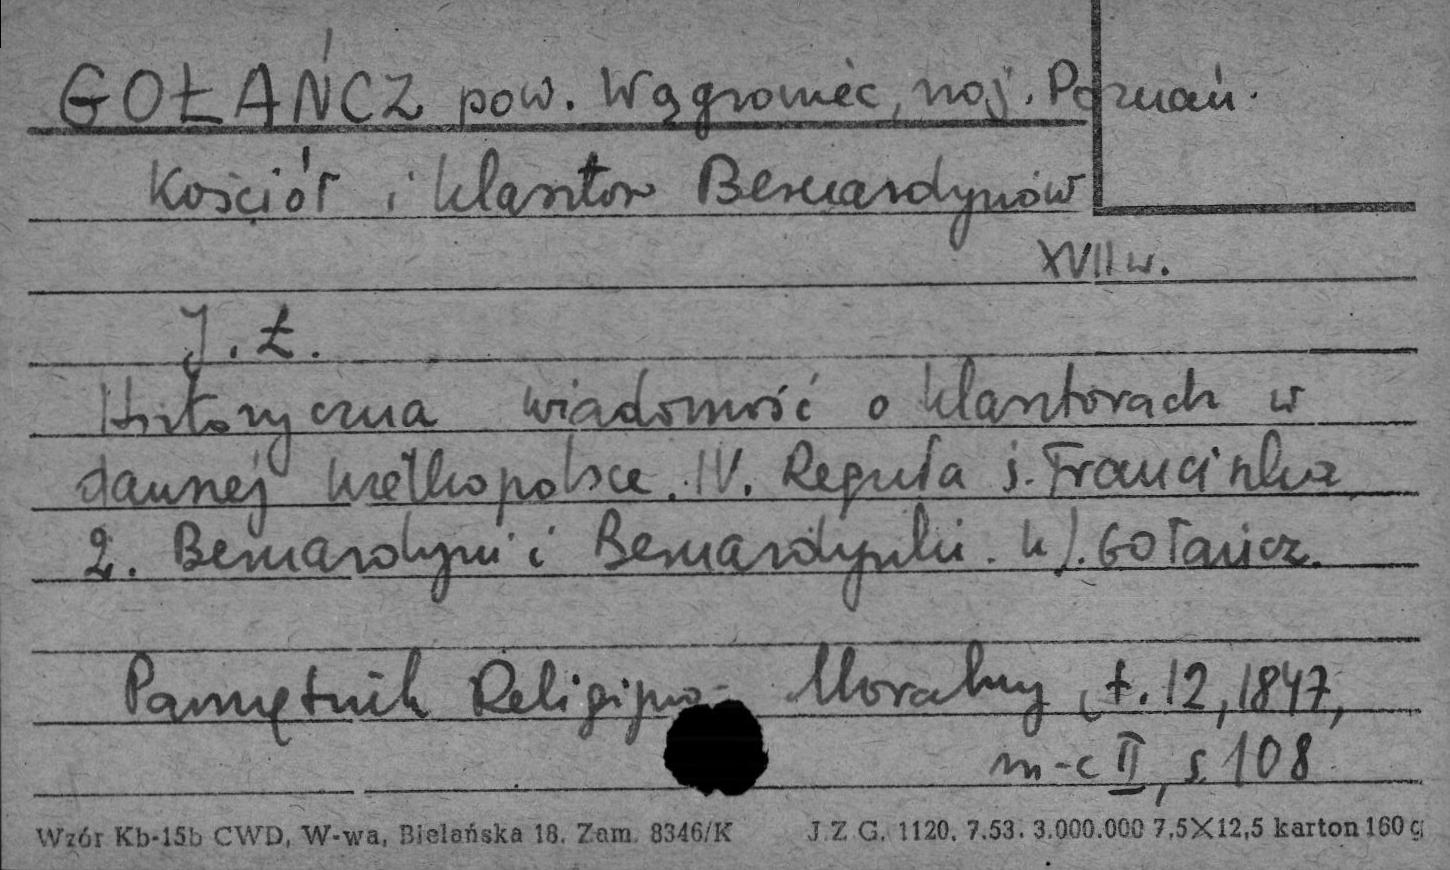 GOŁAŃCZ pow. Wągrowiec, woj. Poznań.
Kościół i klasztor Bernardynów
XVII w.
J. Ł.
Historyczna wiadomość o klasztorach w
dawnej Wielkopolsce. IV. Reguła ś. Franciszka
2. Bernardyni i Bernardynki. k). Gołańcz.
Pamiętnik Religijno-Moralny, t. 12, 1847,
m-c II, s. 108
Wzór Kb-15b CWD, W-wa, Bielańska 18. Zam. 8346/K J.Z.G. 1120. 7.53. 3.000.000 7,5×12,5 karton 160 g